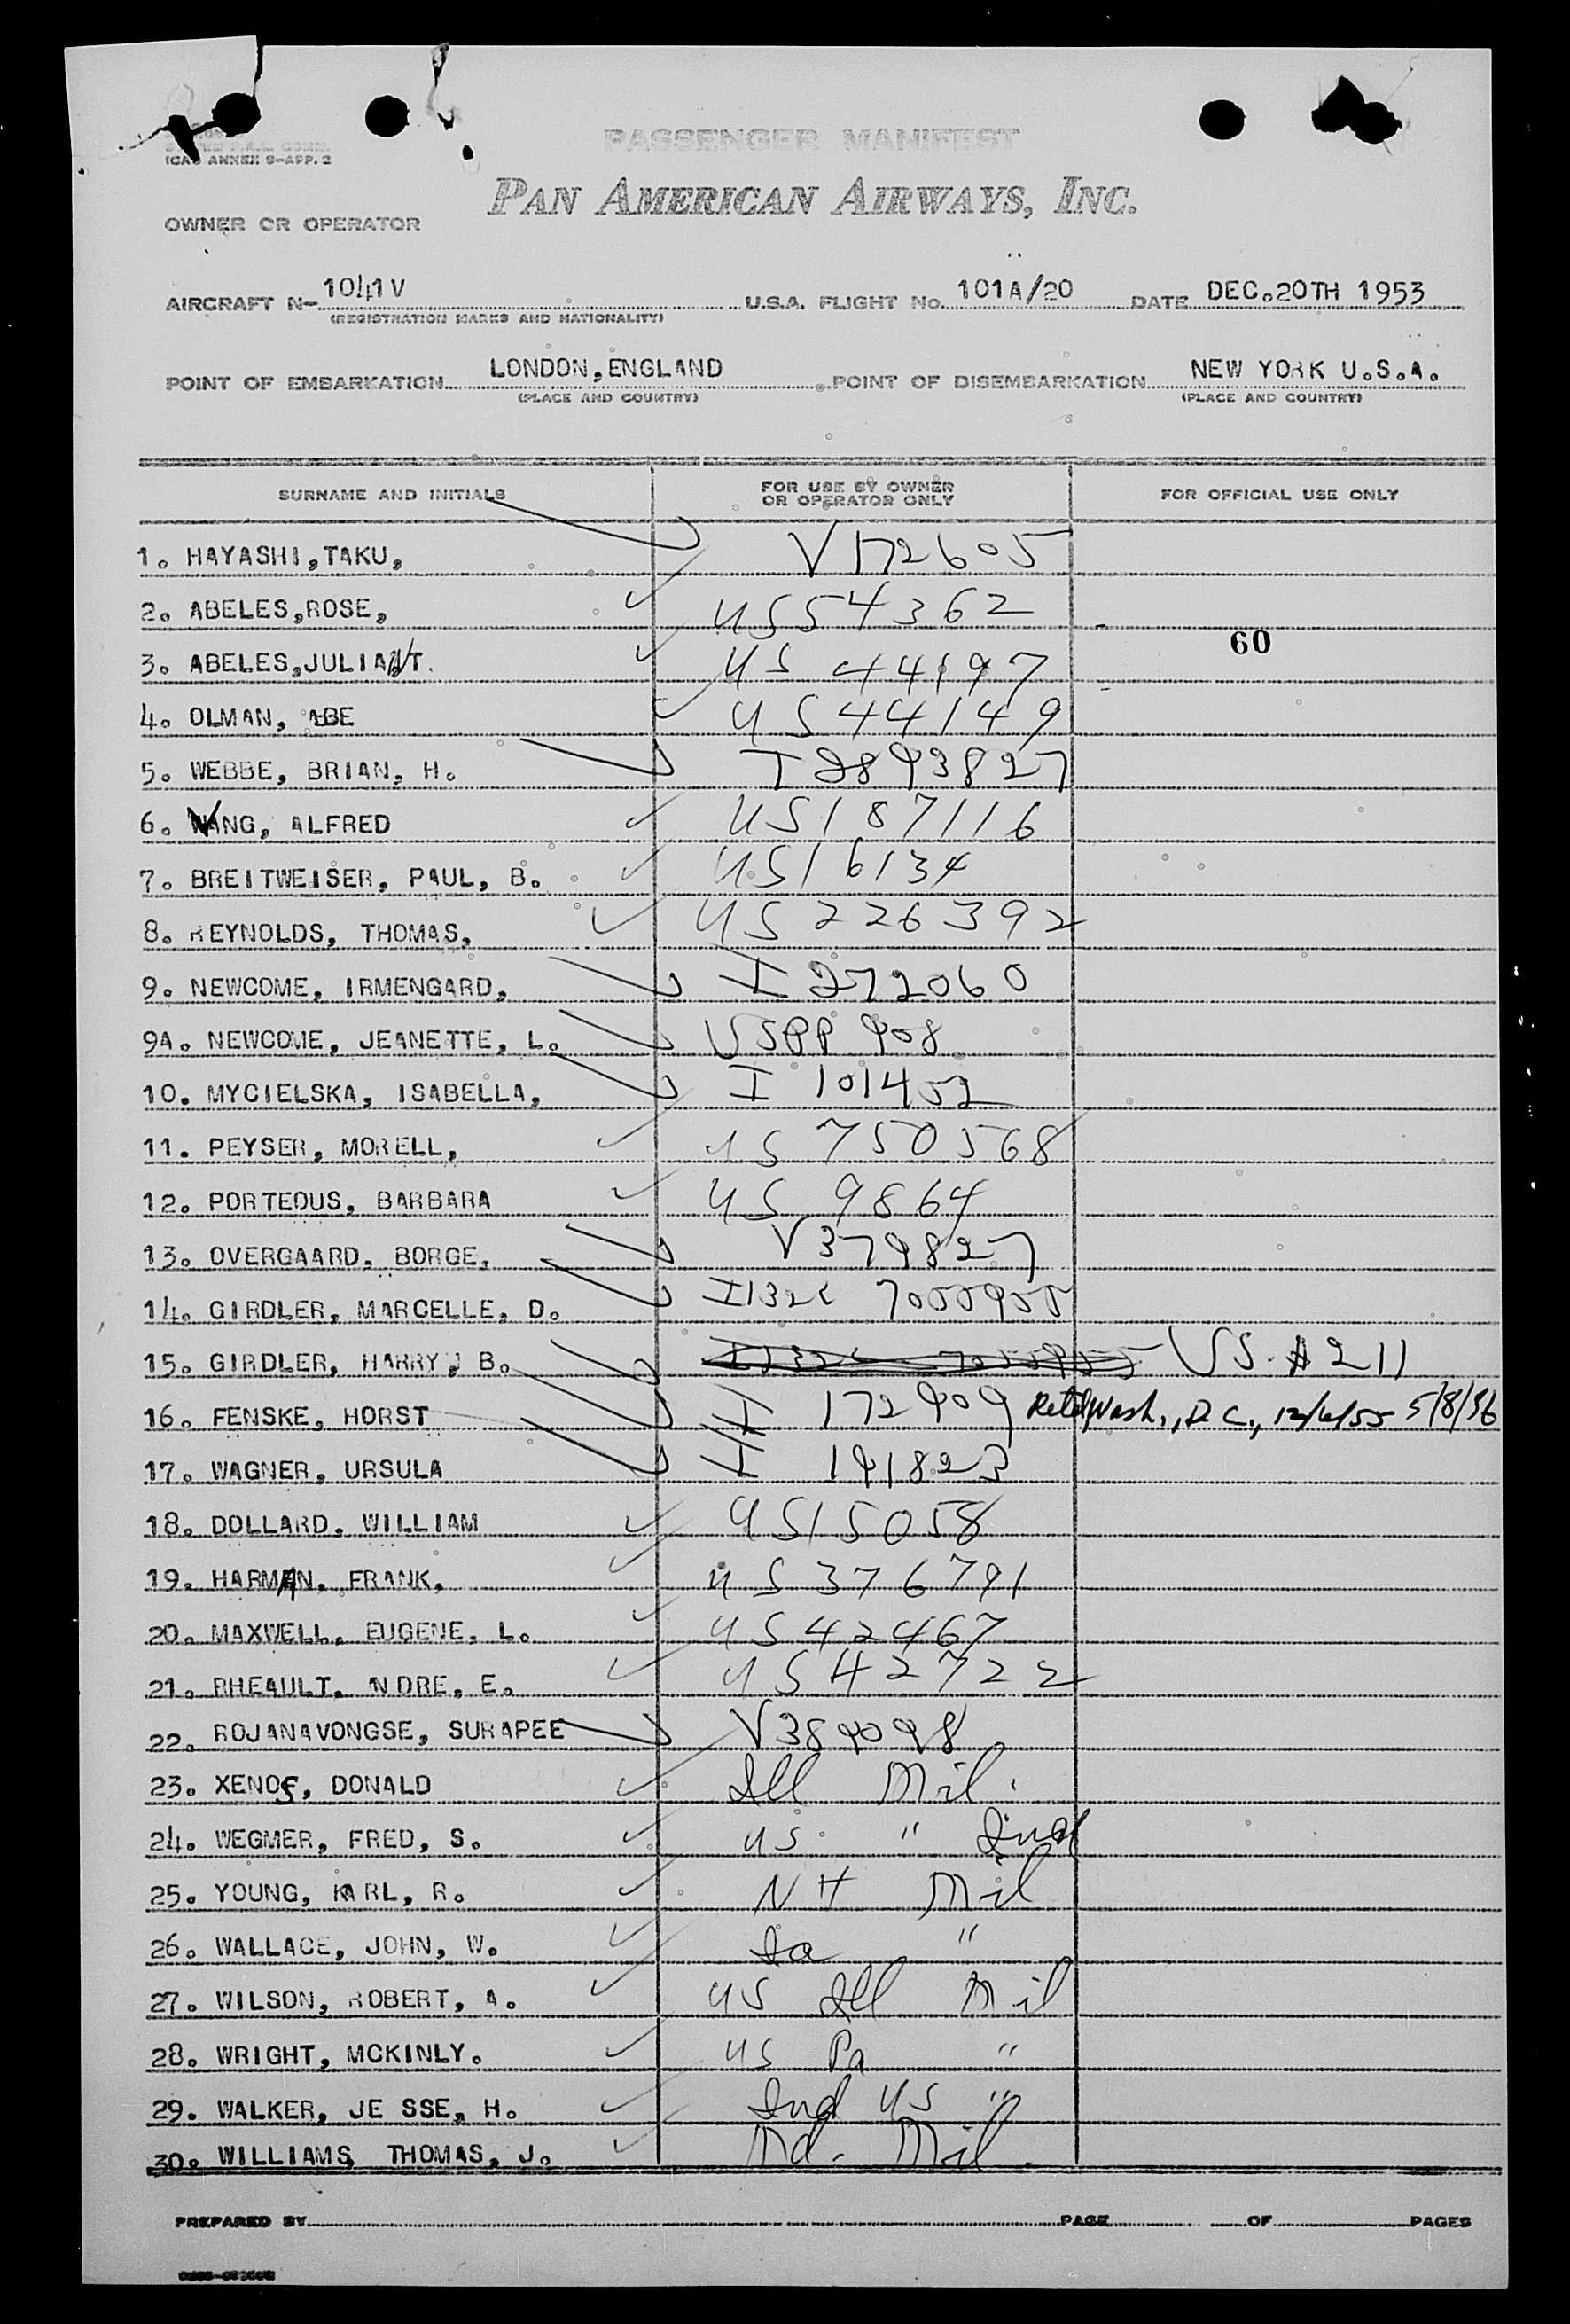 PASSENGER MANIFEST
(CAO ANNEX 9-APP. 2
PAN AMERICAN AIRWAYS, INC.
OWNER OR OPERATOR
AIRCRAFT N- 1041V U.S.A. FLIGHT No. 101A/20 DATE DEC.20TH 1953
(REGISTRATION MARKS AND NATIONALITY)
POINT OF EMBARKATION LONDON,ENGLAND POINT OF DISEMBARKATION NEW YORK U.S.A.
(PLACE AND COUNTRY) (PLACE AND COUNTRY)
SURNAME AND INITIALS FOR USE BY OWNER OR OPERATOR ONLY FOR OFFICIAL USE ONLY
1. HAYASHI,TAKU, V172605
2. ABELES,ROSE, US54362
60
3. ABELES,JULIAN T. US 44197
4. OLMAN, ABE US44149
5. WEBBE, BRIAN, H. I2893827
6. WANG, ALFRED US187116
7. BREITWEISER, PAUL, B. US16134
8. REYNOLDS, THOMAS, US226392
9. NEWCOME, IRMENGARD, I 272060
9A. NEWCOME, JEANETTE, L. USPP 908
10. MYCIELSKA, ISABELLA, I 101452
11. PEYSER, MORELL, US 750568
12. PORTEOUS, BARBARA US 9864
13. OVERGAARD, BORGE, V379827
14. GIRDLER, MARCELLE, D. I132c 7055955
15. GIRDLER, HARRY, B. US. A211
16. FENSKE, HORST I 172909 Retd Wash., D.C., 12/6/55 5/8/56
17. WAGNER, URSULA I 191823
18. DOLLARD, WILLIAM US15058
19. HARMAN, FRANK, US376791
20. MAXWELL, EUGENE, L. US42467
21. RHEAULT, NDRE, E. US42722
22. ROJANAVONGSE, SURAPEE V389098
23. XENOS, DONALD Ill Mil.
24. WEGMER, FRED, S. US. " Ind
25. YOUNG, KARL, R. NH Mil
26. WALLACE, JOHN, W. Ia "
27. WILSON, ROBERT, A. US Ill Mil
28. WRIGHT, MCKINLY. US Pa "
29. WALKER, JE SSE, H. Ind US "
30. WILLIAMS, THOMAS, J. Md. Mil.
PREPARED BY PAGE OF PAGES